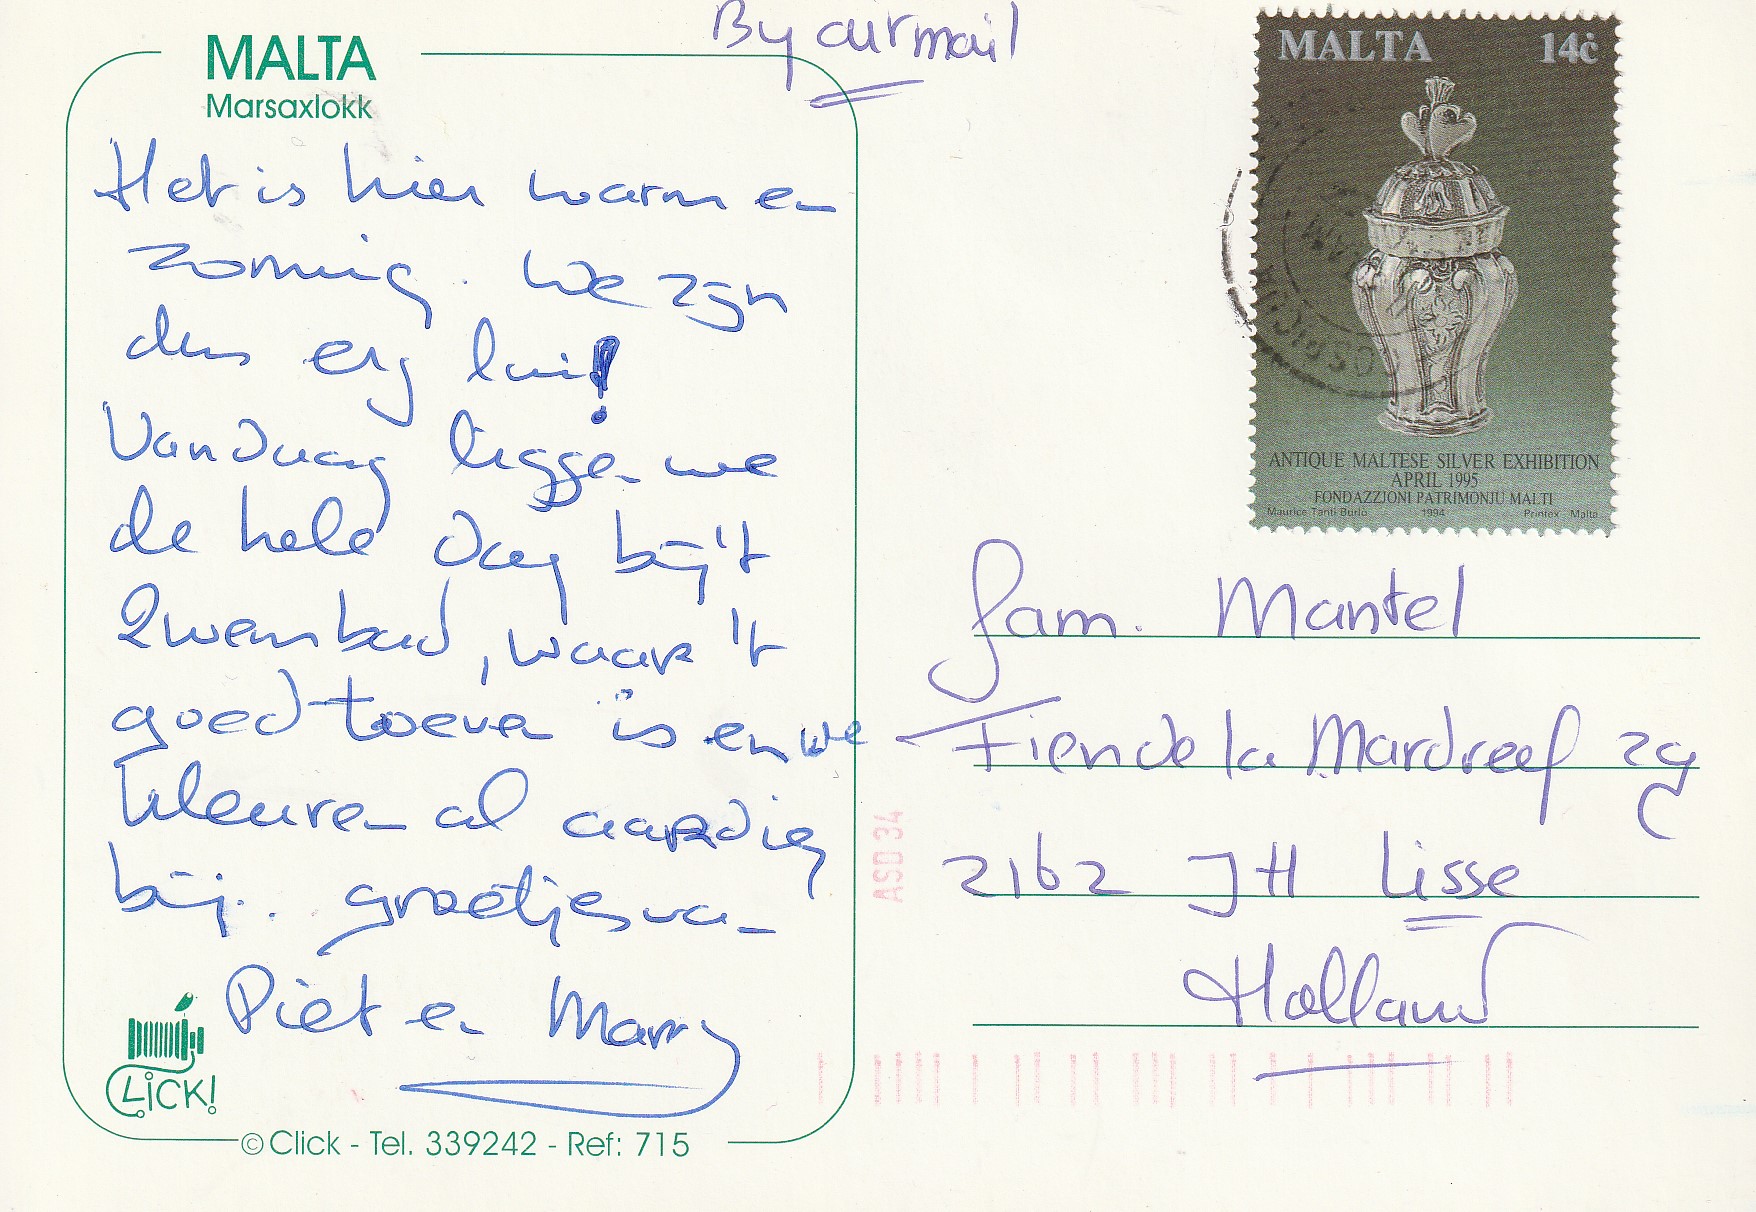 MALTA
Marsaxlokk
Het is hier warm en
zonnig. We zijn
dus erg lui!
Vandaag liggen we
de hele dag bij 't
Zwembad, waar 't
goed toeven is en we
kleuren al aardig
bij. groetjes van
Piet en Marry
CLiCK!
© Click - Tel. 339242 - Ref: 715
By airmail
MALTA 14ċ
ANTIQUE MALTESE SILVER EXHIBITION
APRIL 1995
FONDAZZJONI PATRIMONJU MALTI
Maurice Tanti Burlo 1994 Printex Malta
fam. Mantel
Fien de la Mardreef 29
2162 JH Lisse
Holland
ASD 34